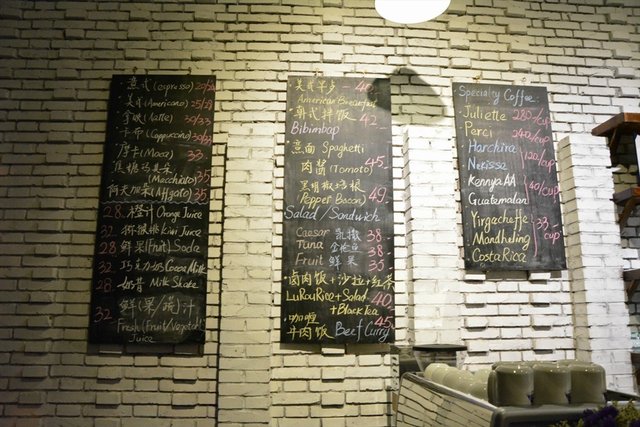 意式(Espresso) 25/28
美式(Americano) 25/29
拿铁(Latte) 30/33
卡布(Cappuccino) 30/33
摩卡(Moca) 33
焦糖玛奇朵
(Macchiato) 35
35
28. 橙汁 Orange Juice
32 猕猴桃 Kiwi Juice
28 鲜果(Fruit) Soda
32 巧克力奶 Cocoa Milk
28 奶昔 Milk Shake
32 鲜(果/蔬)汁
Fresh (Fruit/Vegetable)
Juice
美式早餐 40
American Breakfast
韩式拌饭 42
Bibimbap
意面 Spaghetti
肉酱(Tomato) 45
黑胡椒培根
(Pepper Bacon) 49
Salad / Sandwich
Caesar 乳撒 38
Tuna 金枪鱼 38
Fruit 鲜果 35
卤肉饭+沙拉+红茶
LuRouRice+Salad 40
+Black Tea
咖喱 45
牛肉饭 Beef Curry
Specialty Coffee
Juliette 280/cup
Perci 240/cup
Harchira 120/cup
Nekisse
Kennya AA 40/cup
Guatemalan
Yirgacheffe 35/cup
Mandheling
Costa Rica